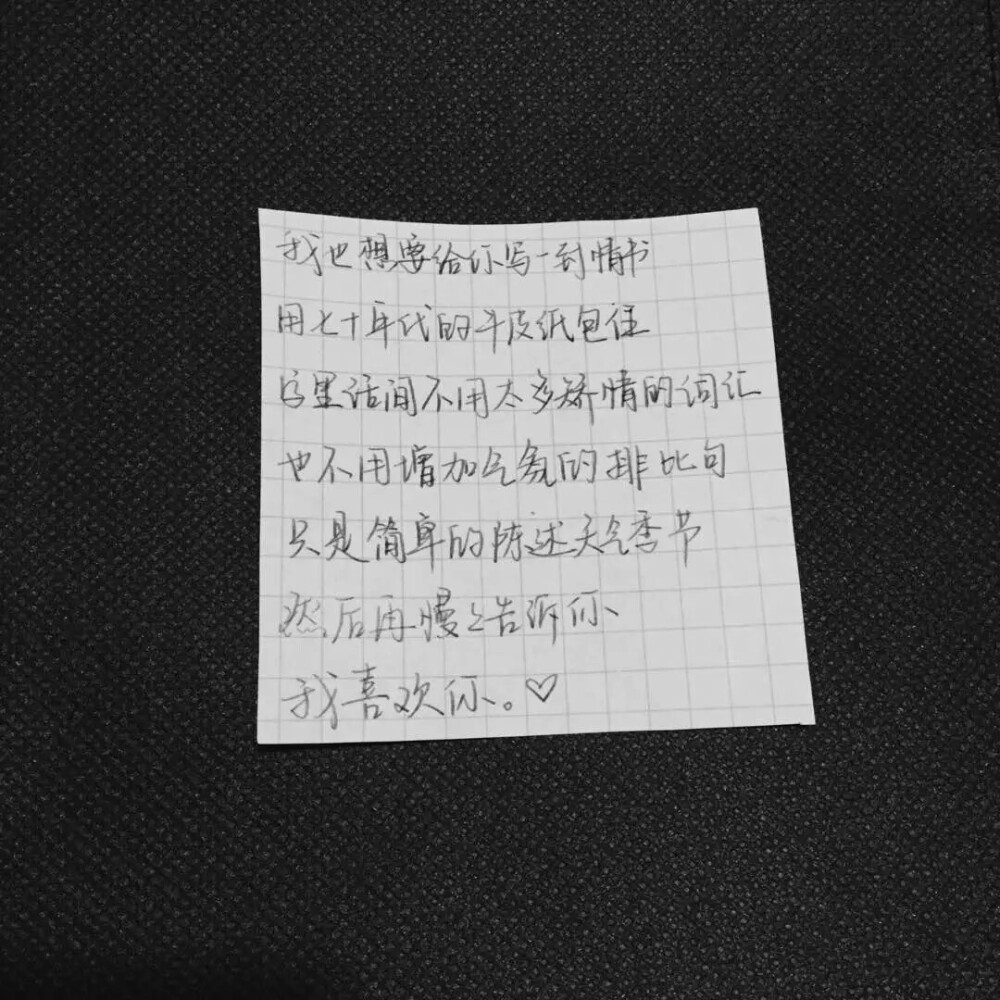 我也想要给你写一到情书
用七十年代的牛皮纸包住
字里话间不用太多矫情的词汇
也不用增加气氛的排比句
只是简单的陈述天气季节
然后再慢々告诉你
我喜欢你。♡